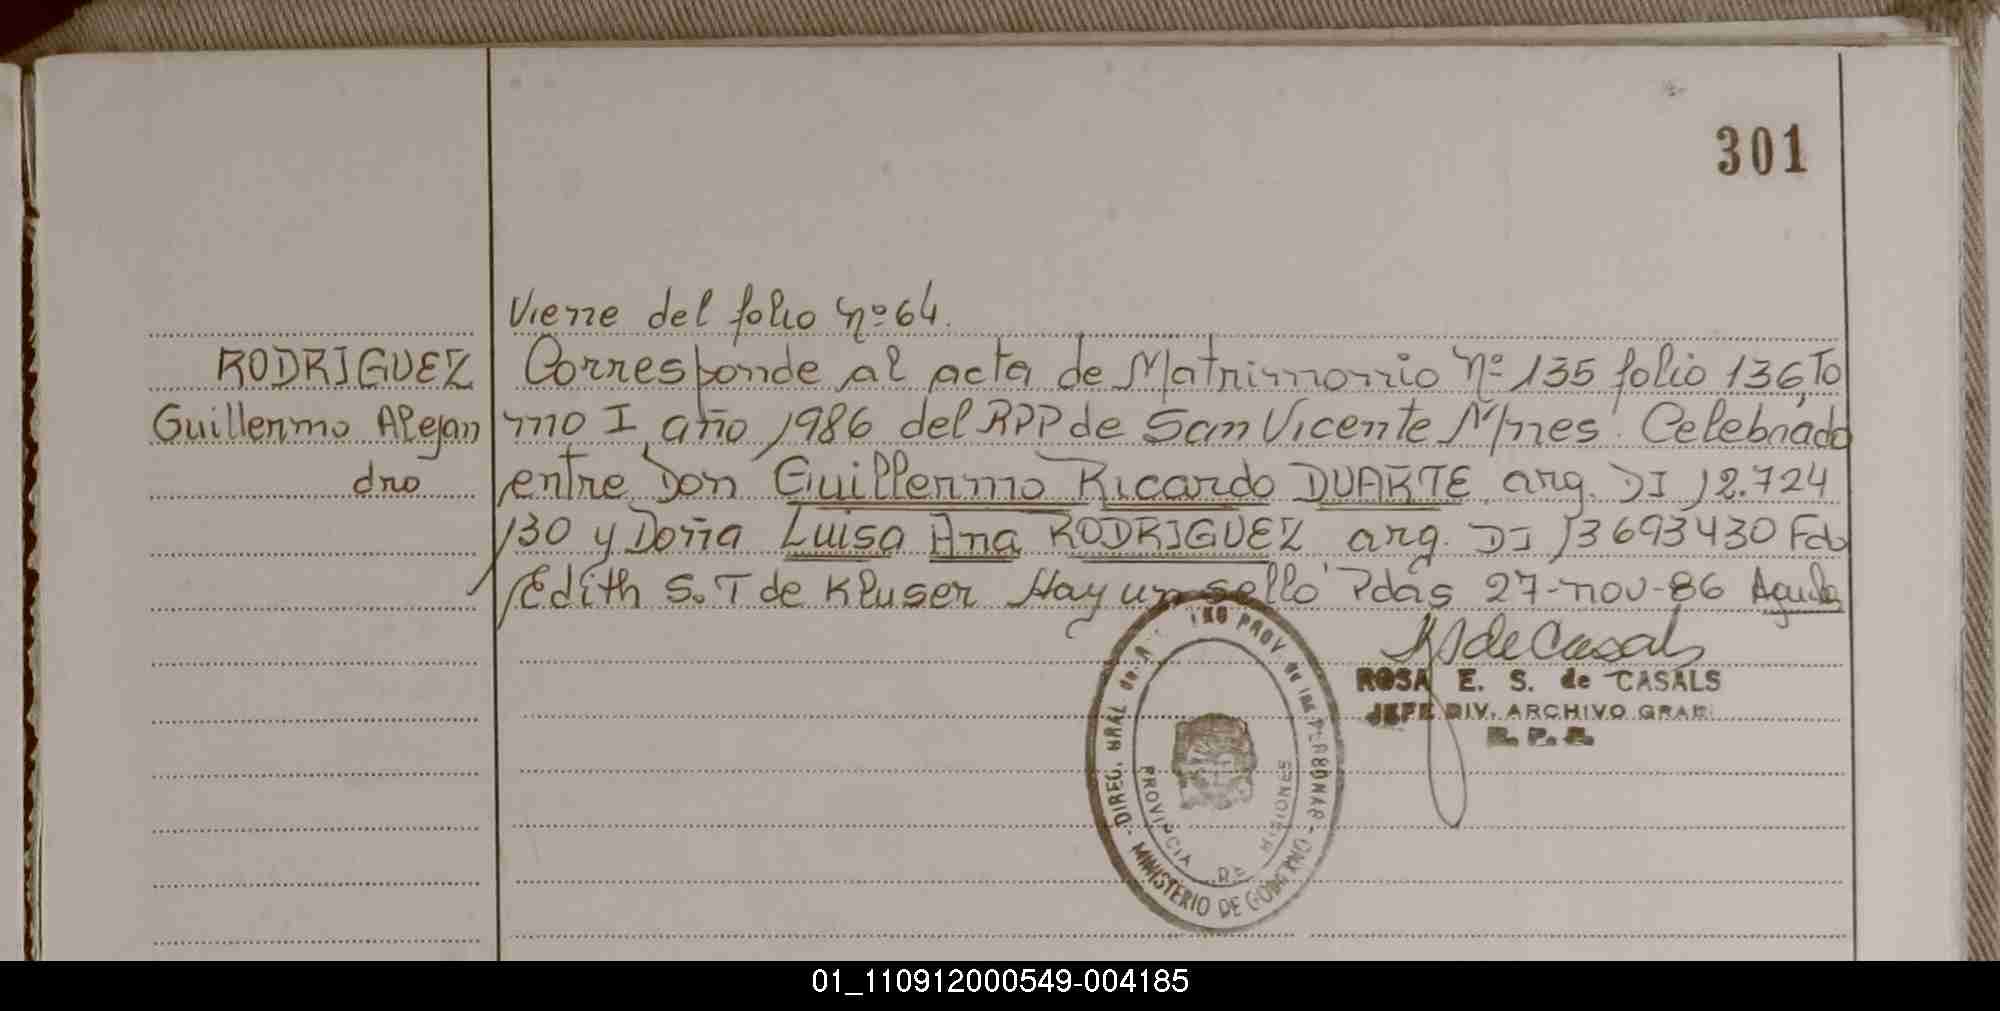 301
Viene del folio Nº 64.
RODRIGUEZ Corresponde al acta de Matrimonio Nº 135 folio 136, To
Guillermo Alejan mo I año 1986 del RPP de San Vicente M/nes. Celebrado
dro entre Don Guillermo Ricardo DUARTE arg. DI 12.724
130 y Doña Luisa Ana RODRIGUEZ arg. DI 13693430 Fdo
Edith S. T de Kluser Hay un sello Pdas 27-nov-86 Aguila
RS de Casals
ROSA E. S. de CASALS
JEFE DIV. ARCHIVO GRAL.
R. P. P.
DIREC. GRAL de PROV de las PERSONAS - MINISTERIO DE GOBIERNO -
PROVINCIA DE MISIONES
01_110912000549-004185